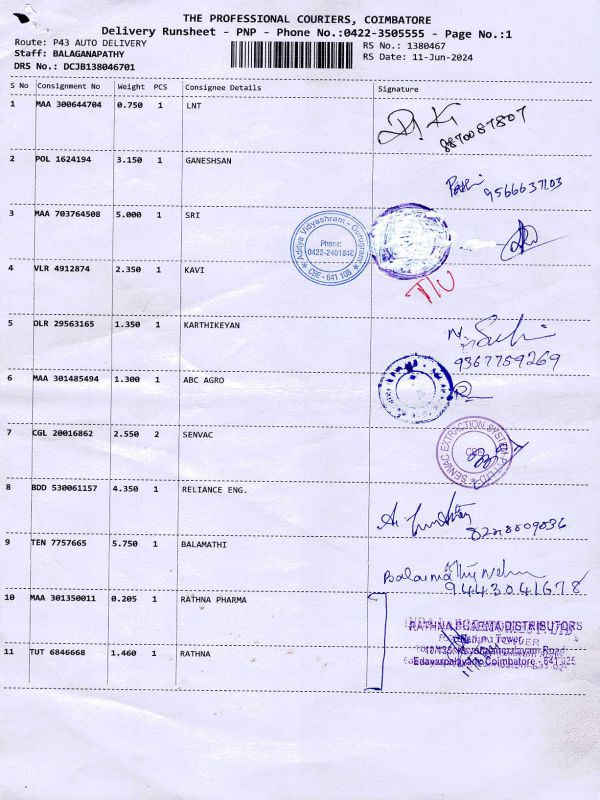 THE PROFESSIONAL COURIERS, COIMBATORE
Delivery Runsheet - PNP - Phone No.:0422-3505555 - Page No.:1
Route: P43 AUTO DELIVERY RS No.: 1380467
Staff: BALAGANAPATHY RS Date: 11-Jun-2024
DRS No.: DCJB138046701
S No Consignment No Weight PCS Consignee Details Signature
1 MAA 300644704 0.750 1 LNT
8870087807
2 POL 1624194 3.150 1 GANESHSAN
9566637103
3 MAA 703764508 5.000 1 SRI
Aditya Vidyashram - Gurugram
Phone:
0422-2401846
CBE - 641 108
4 VLR 4912874 2.350 1 KAVI
5 DLR 29563165 1.350 1 KARTHIKEYAN
9367759269
6 MAA 301485494 1.300 1 ABC AGRO
7 CGL 20016862 2.550 2 SENVAC
SENVAC EXTRACTION SYSTEM
8 BDD 530061157 4.350 1 RELIANCE ENG.
9 TEN 7757665 5.750 1 BALAMATHI
9443041678
10 MAA 301350011 0.205 1 RATHNA PHARMA
RATHNA PHARMA DISTRIBUTORS
Tower
11 TUT 6846668 1.460 1 RATHNA
Edayarpalayam Coimbatore - 641 025